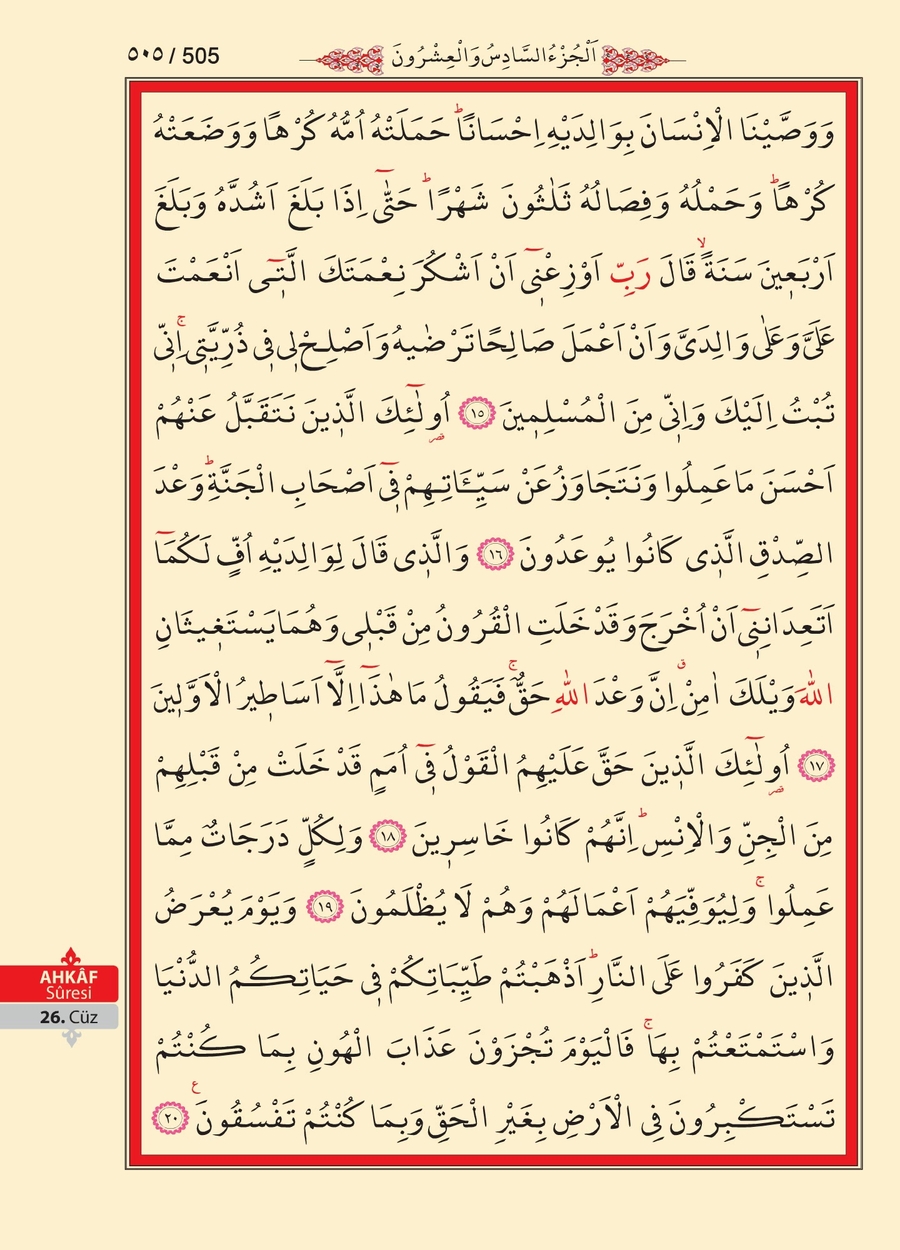 ٥٠٥ / 505
اَلْجُزْءُ السَّادِسُ وَالْعِشْرُونَ
وَوَصَّيْنَا الْاِنْسَانَ بِوَالِدَيْهِ اِحْسَانًاۜ حَمَلَتْهُ اُمُّهُ كُرْهًا وَوَضَعَتْهُ
كُرْهًاۜ وَحَمْلُهُ وَفِصَالُهُ ثَلٰثُونَ شَهْرًاۜ حَتّٰٓى اِذَا بَلَغَ اَشُدَّهُ وَبَلَغَ
اَرْبَع۪ينَ سَنَةًۙ قَالَ رَبِّ اَوْزِعْن۪ٓى اَنْ اَشْكُرَ نِعْمَتَكَ الَّت۪ٓى اَنْعَمْتَ
عَلَىَّ وَعَلٰى وَالِدَىَّ وَاَنْ اَعْمَلَ صَالِحًا تَرْضٰيهُ وَاَصْلِحْ ل۪ى ف۪ى ذُرِّيَّت۪ىۚ اِنّ۪ى
تُبْتُ اِلَيْكَ وَاِنّ۪ى مِنَ الْمُسْلِم۪ينَ ﴿١٥﴾ اُو۬لٰٓئِكَ الَّذ۪ينَ نَتَقَبَّلُ عَنْهُمْ
اَحْسَنَ مَا عَمِلُوا وَنَتَجَاوَزُ عَنْ سَيِّـَٔاتِهِمْ ف۪ٓى اَصْحَابِ الْجَنَّةِۜ وَعْدَ
الصِّدْقِ الَّذ۪ى كَانُوا يُوعَدُونَ ﴿١٦﴾ وَالَّذ۪ى قَالَ لِوَالِدَيْهِ اُفٍّ لَكُمَٓا
اَتَعِدَانِن۪ٓى اَنْ اُخْرَجَ وَقَدْ خَلَتِ الْقُرُونُ مِنْ قَبْل۪ى وَهُمَا يَسْتَغ۪يثَانِ
اللّٰهَ وَيْلَكَ اٰمِنْۗ اِنَّ وَعْدَ اللّٰهِ حَقٌّۚ فَيَقُولُ مَا هٰذَٓا اِلَّٓا اَسَاط۪يرُ الْاَوَّل۪ينَ
﴿١٧﴾ اُو۬لٰٓئِكَ الَّذ۪ينَ حَقَّ عَلَيْهِمُ الْقَوْلُ ف۪ٓى اُمَمٍ قَدْ خَلَتْ مِنْ قَبْلِهِمْ
مِنَ الْجِنِّ وَالْاِنْسِۜ اِنَّهُمْ كَانُوا خَاسِر۪ينَ ﴿١٨﴾ وَلِكُلٍّ دَرَجَاتٌ مِمَّا
عَمِلُواۚ وَلِيُوَفِّيَهُمْ اَعْمَالَهُمْ وَهُمْ لَا يُظْلَمُونَ ﴿١٩﴾ وَيَوْمَ يُعْرَضُ
الَّذ۪ينَ كَفَرُوا عَلَى النَّارِۜ اَذْهَبْتُمْ طَيِّبَاتِكُمْ ف۪ى حَيَاتِكُمُ الدُّنْيَا
وَاسْتَمْتَعْتُمْ بِهَاۚ فَالْيَوْمَ تُجْزَوْنَ عَذَابَ الْهُونِ بِمَا كُنْتُمْ
تَسْتَكْبِرُونَ فِى الْاَرْضِ بِغَيْرِ الْحَقِّ وَبِمَا كُنْتُمْ تَفْسُقُونَ۟ ﴿٢٠﴾
AHKÂF
Sûresi
26. Cüz